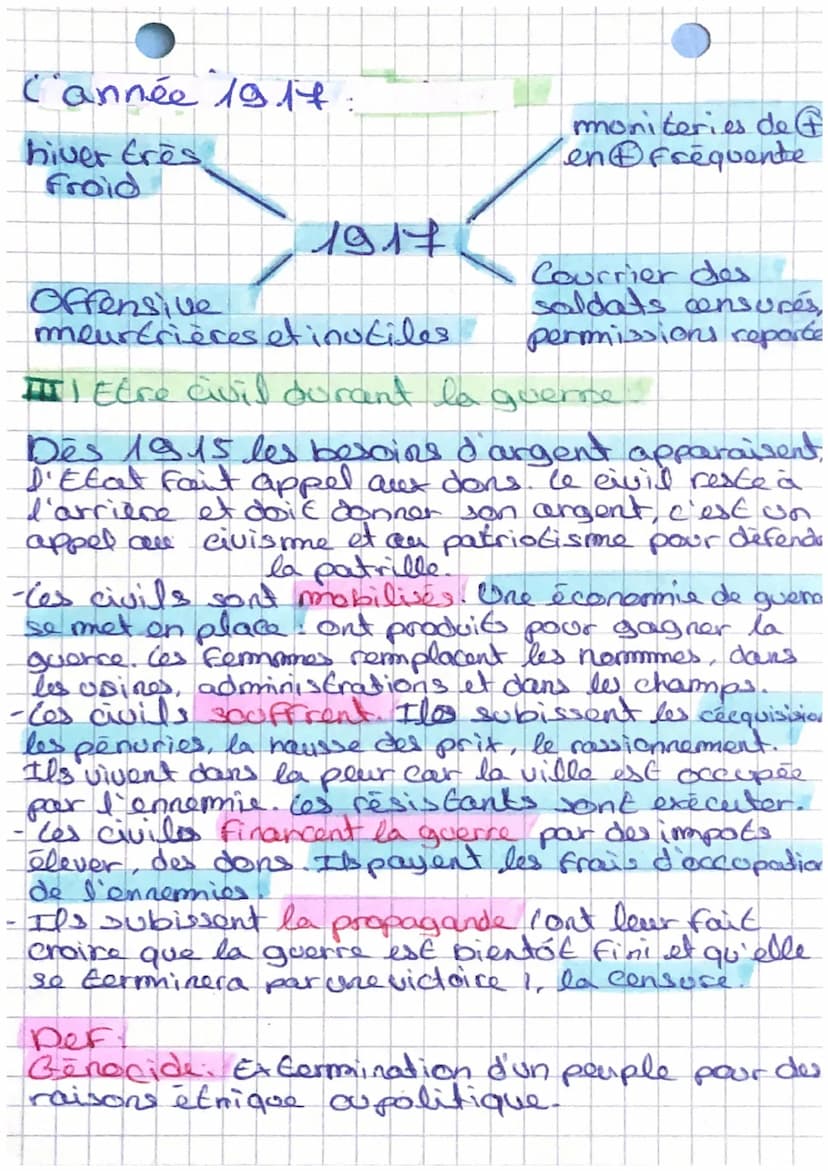 L'année 1917:
hiver très
froid
moniteries de ⊕
en ⊕ fréquente
1917
Offensive
meurtrières et inutiles
Courrier des
soldats censurés,
permissions reporte
III) Etre civil durant la guerre:
Dès 1915 les besoins d'argent apparaisent,
l'Etat fait appel aux dons. Le civil reste à
l'arrière et doit donner son argent, c'est un
appel au civisme et au patriotisme pour défend
la patrille.
-Les civils sont mobilisés. Une économie de guerre
se met en place: ont produits pour gagner la
guerre. Les femmmes remplacent les hommmes, dans
les usines, administrations et dans les champs.
-Les civils souffrent. Ils subissent les récquisition
les pénuries, la hausse des prix, le rassionnement.
Ils vivent dans la peur car la ville est occupée
par l'ennemmie. Les résistants sont exécuter.
- Les civils financent la guerre par des impots
élever, des dons. Ils payent les frais d'occupation
de l'ennemmies.
- Ils subissent la propagande (ont leur fait
croire que la guerre est bientôt fini et qu'elle
se terminera par une victoire ), la censure.
Def:
Génocide: Extermination d'un peuple pour des
raisons étnique ou politique.